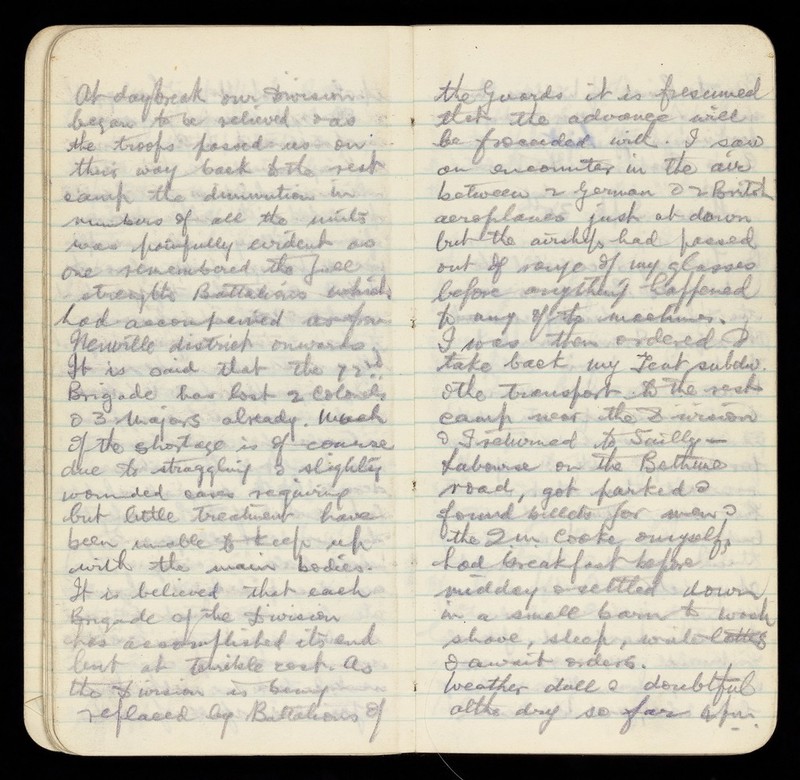 At daybreak our Division
began to be relieved & as
the troops passed us on
their way back to the rest
camp the diminution in
numbers of all the units
was painfully evident as
one remembered the full
strength Battalions which
had accompanied us from
Neuville district onwards.
It is said that the 72nd
Brigade has lost 2 Colonels
& 3 Majors already. Much
of the shortage is of course
due to straggling & slightly
wounded cases requiring
but little treatment have
been unable to keep up
with the main bodies.
It is believed that each
Brigade of the Division
has accomplished its end
but at terrible cost. As
the Division is being
replaced by Battalions of
the Guards it is presumed
that the advance will
be proceeded with. I saw
an encounter in the air
between 2 German & 2 British
aeroplanes just at dawn
but the airships had passed
out of range of my glasses
before anything happened
to any of the machines.
I was then ordered to
take back my Tent subdiv.
& the transport to the rest
camp near the Division
& I returned to Sailly-
Labourse on the Bethune
road, got parked &
found billets for men &
the Q.M. Cooke & myself,
had breakfast before
midday & settled down
in a small barn to wash
shave, sleep, write letters
& await orders.
Weather dull & doubtful
altho dry so far 2 pm.